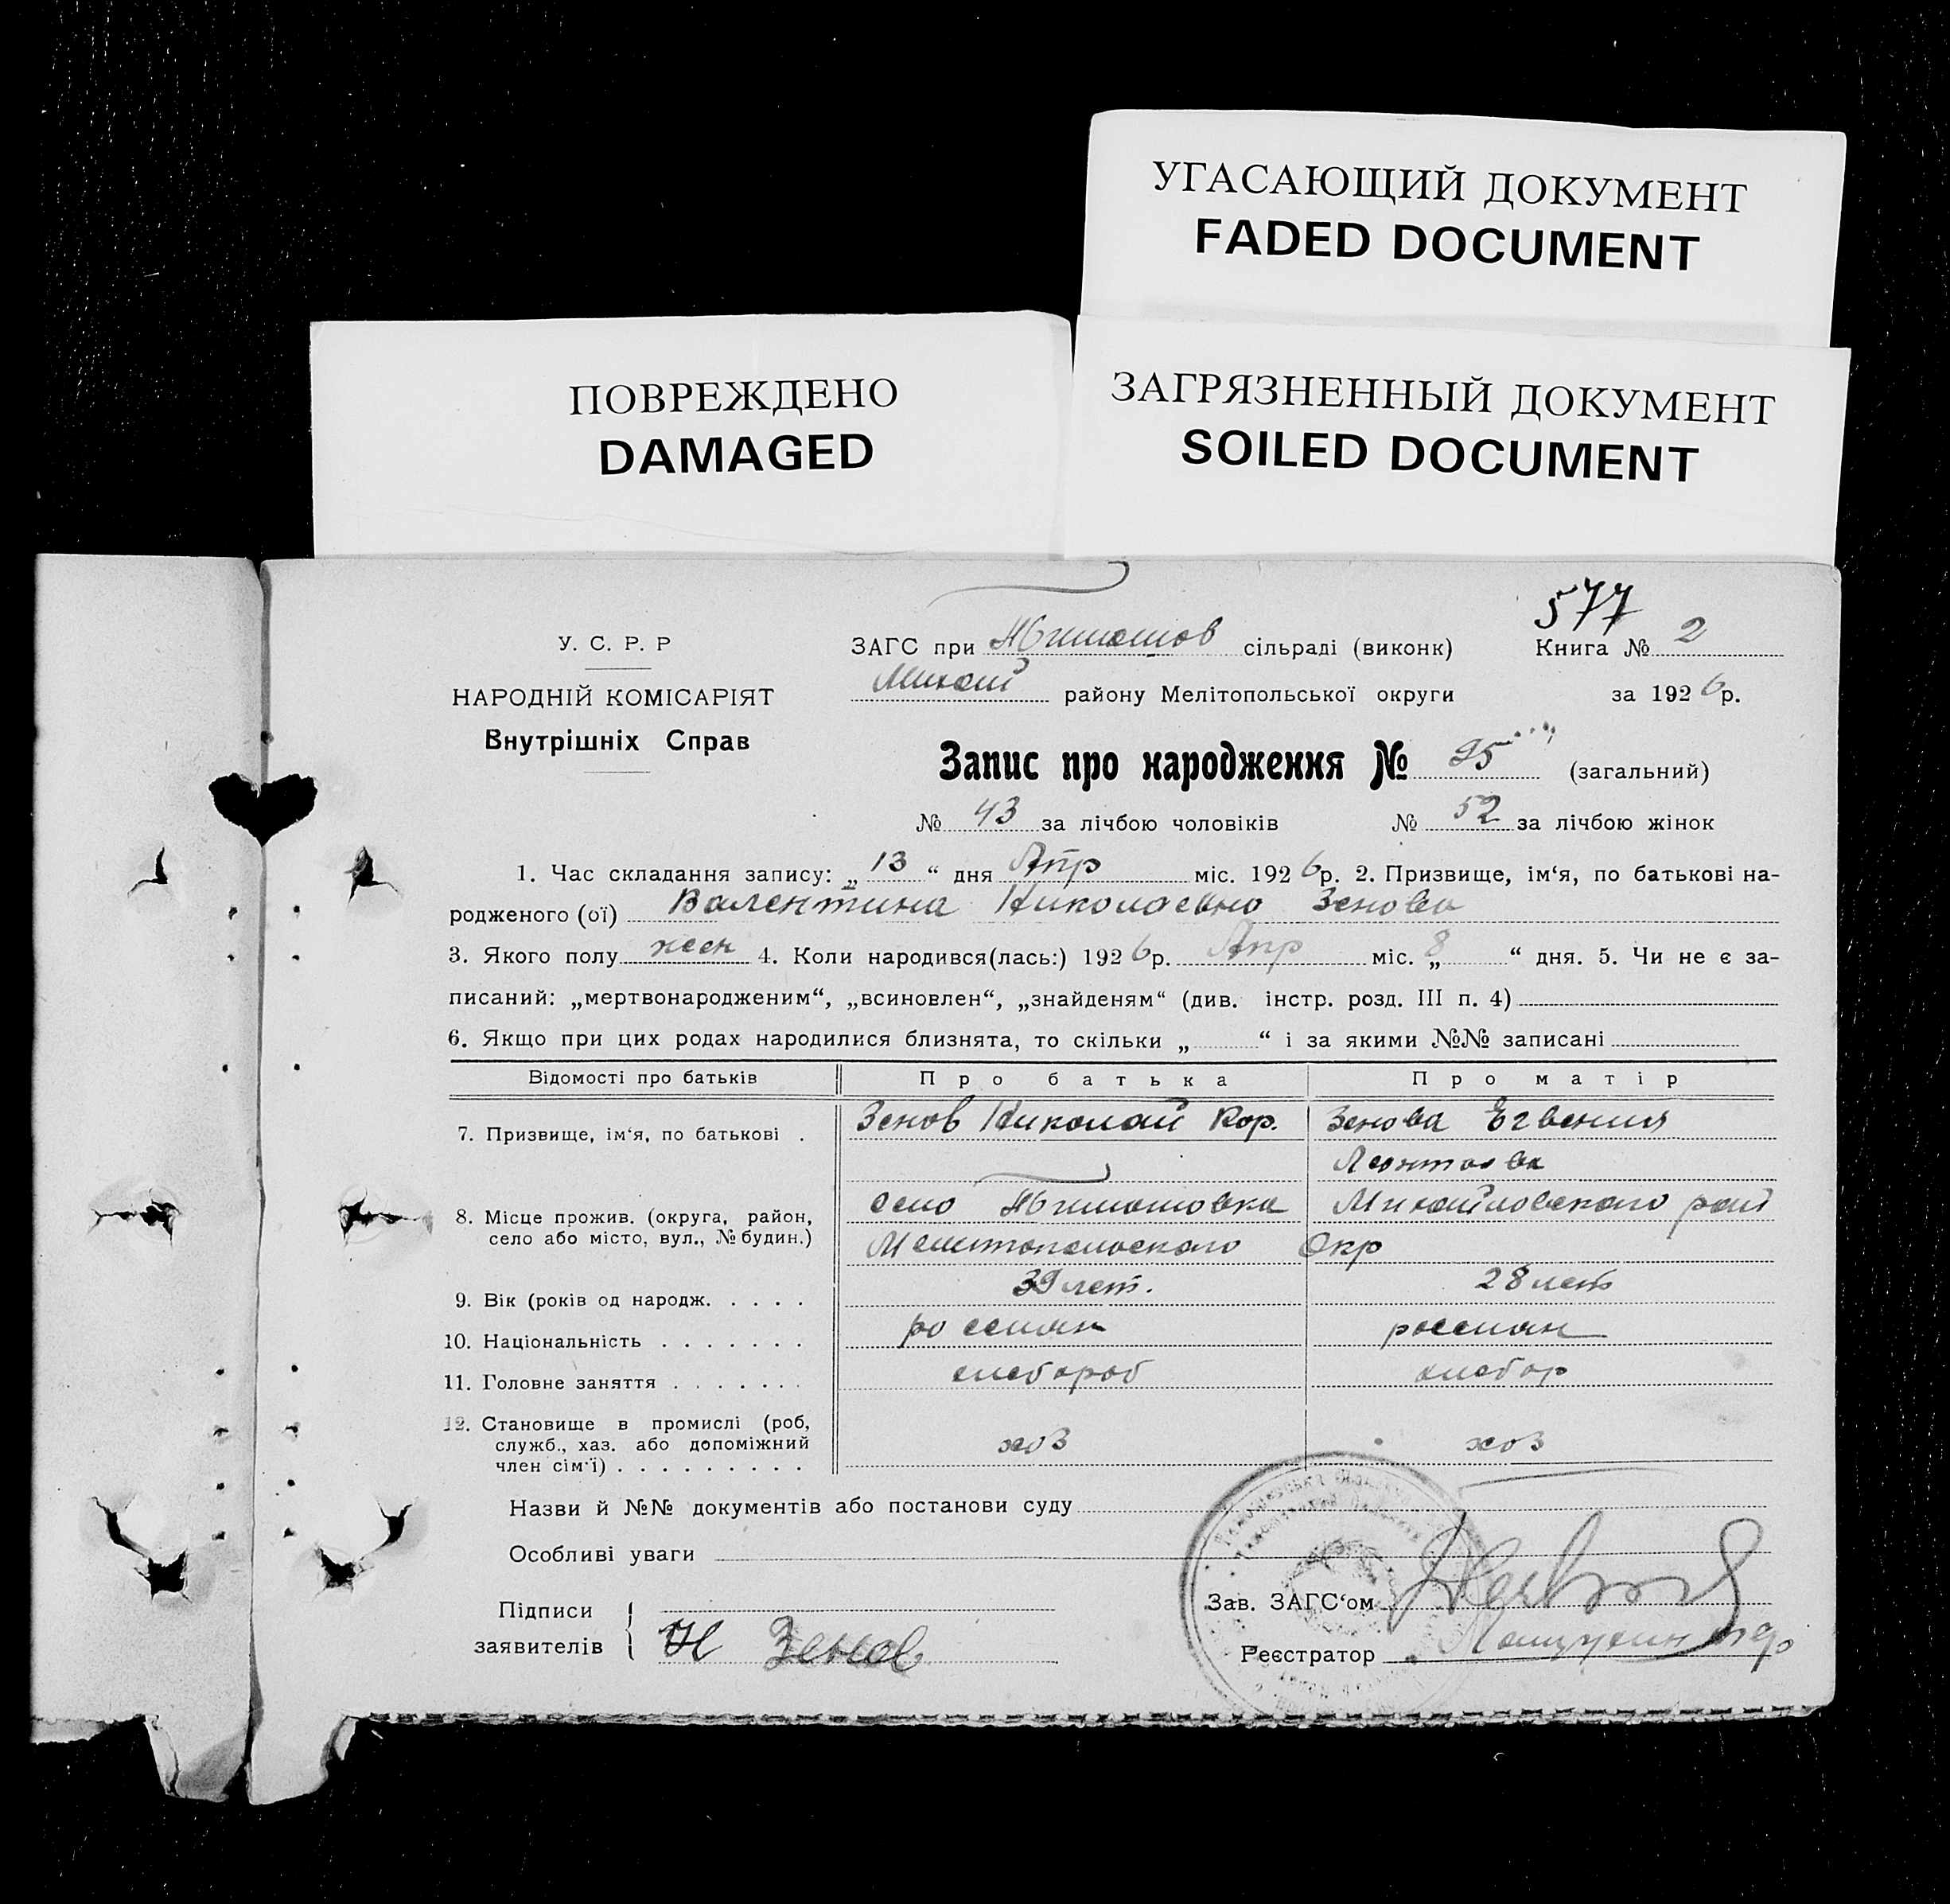 УГАСАЮЩИЙ ДОКУМЕНТ
FADED DOCUMENT
ПОВРЕЖДЕНО
DAMAGED
ЗАГРЯЗНЕННЫЙ ДОКУМЕНТ
SOILED DOCUMENT
577
У. С. Р. Р
ЗАГС при Тимошов сільраді (виконк) Книга № 2
НАРОДНІЙ КОМІСАРІЯТ
Михай району Мелітопольської округи за 1926р.
Внутрішніх Справ
Запис про народження № 95 (загальний)
№ 43 за лічбою чоловіків № 52 за лічбою жінок
1. Час складання запису: „13“ дня Апр міс. 1926р. 2. Призвище, ім‘я, по батькові на-
родженого (ої) Валентина Николаевна Зенова
3. Якого полу жен 4. Коли народився(лась:) 1926р. Апр міс. „8“ дня. 5. Чи не є за-
писаний: „мертвонародженим“, „всиновлен“, „знайденям“ (див. інстр. розд. III п. 4)
6. Якщо при цих родах народилися близнята, то скільки „ “ і за якими №№ записані
Відомості про батьків Про батька Про матір
7. Призвище, ім‘я, по батькові . Зенов Николай Кор. Зенова Евгения
Леонтьевн
8. Місце прожив. (округа, район, село або місто, вул., № будин.) село Тимошовка Михайловского рай
Мелитопольского Окр
9. Вік (років од народж. . . . . 39 лет. 28 лет
10. Національність . . . . . . . россиян россиян
11. Головне заняття . . . . . . . хлебороб хлебор
12. Становище в промислі (роб,
служб., хаз. або допоміжний
член сім‘ї) . . . . . . . . . хоз хоз
Назви й №№ документів або постанови суду
Особливі уваги
Підписи
заявителів
Н Зенов
Зав. ЗАГС‘ом
Реєстратор